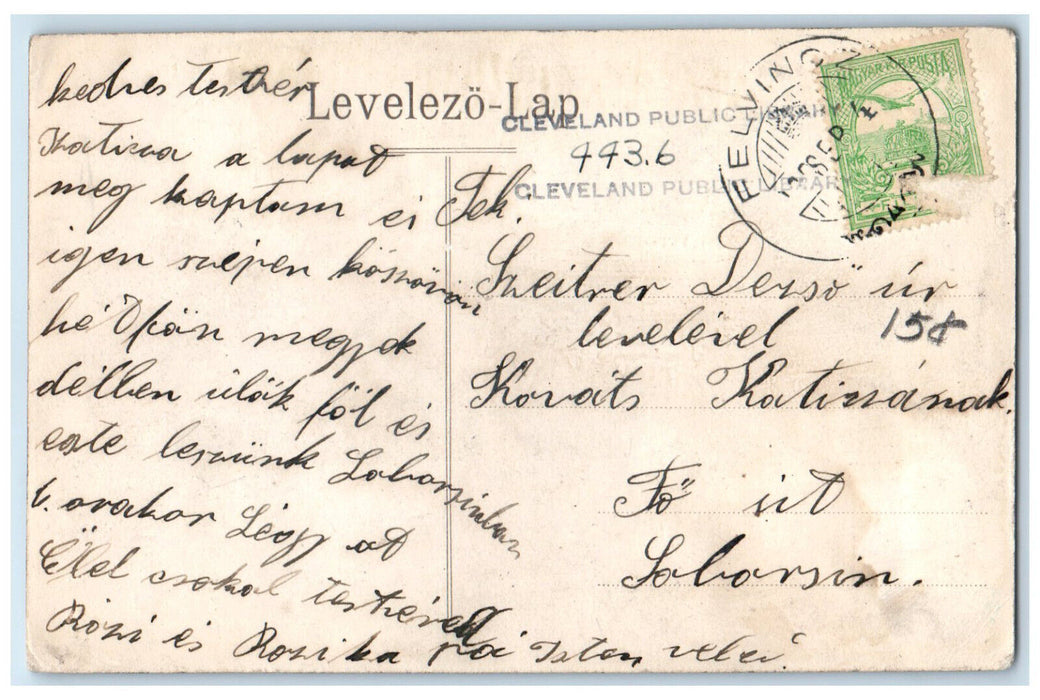 Levelező-Lap
CLEVELAND PUBLIC LIBRARY
443.6
CLEVELAND PUBLIC LIBRARY
FELVINC
MAGYAR KIR. POSTA
kedves testvér
Katicza a lapot
meg kaptam és
igen szépen köszönöm
hétfön megyek
délben ülök föl és
este leszünk Soborsinban
6. orakor Légy ot
Ölel csokol testvéred
Rózi és Rozika pá Isten veled
Tek.
Szeitrer Dezsö úr
levelével
Kováts Katiczának.
158
Fő út
Soborsin.